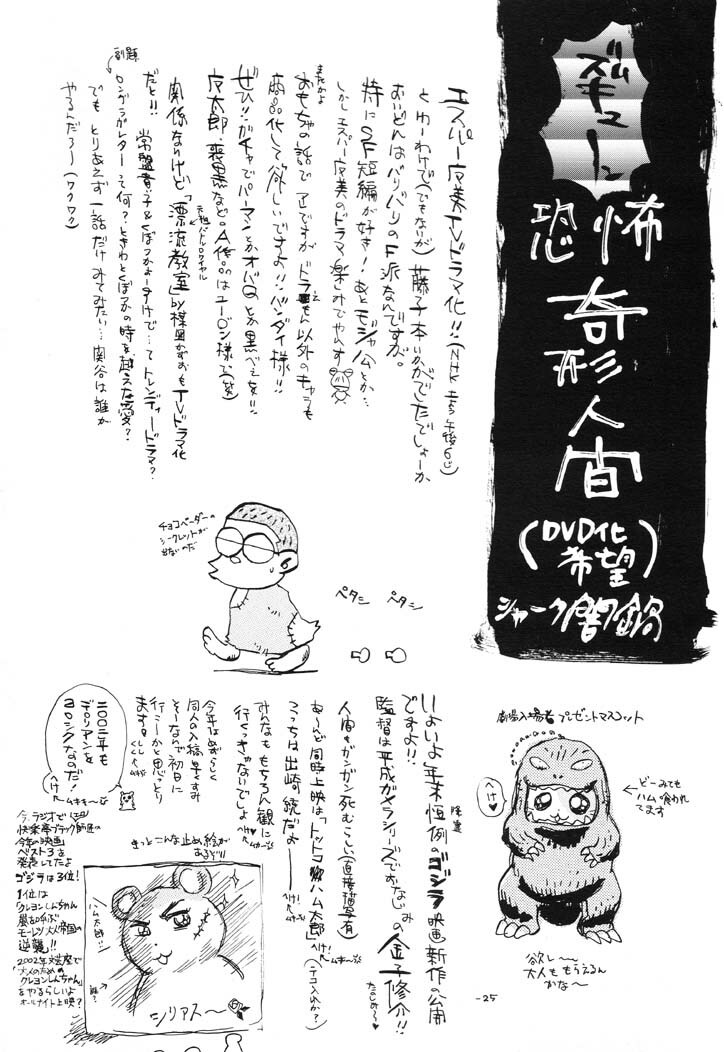 ズギューム
恐怖
奇形人間
(DVD化希望)
シャーク闇鍋
エスパー魔美TVドラマ化!!(NHK 午後6じ)
とゆーわけで(でもないが)藤子本いかがでしたでしょーか
おいどんはバリバリのF派なんですが。
特にSF短編が好き!あとモジャ公とか…
しかしエスパー魔美のドラマ楽しみでやんす
まだかよ
おもちゃの話で アレですが ドラえもん以外のキャラも
商品化して欲しいですよ!!バンダイ様!!
ぜひ!!ガチャでパーマンとかオバQとか黒べえを!!
魔太郎、喪黒など。A作品はユージン様で(笑)
元祖バトルロワイヤル
関係ないけど「漂流教室」by楳図かずおもTVドラマ化
だと!! 常盤貴子&くぼづかよーすけで…てトレンディードラマ?
副題
ロングラブレターって何?ときわとくぼづかの時を越えた愛?
でも とりあえず一話だけみてみたい…関谷は誰が
やるんだろー(ワクワク)
チョコベーダーの
シークレットが
出ないのだ
ペタシ ペタシ
劇場入場者プレゼントマスコット
ヘけ♡
どーみても
ハム喰われ
てます
欲し~
大人ももらえるん
かな~
-25
いよいよ年末恒例のゴジラ映画新作の公開
ですよ!!
監督は平成ガメラシリーズでおなじみの金子修介!!
たのしみ~♥
人間もガンガン死むらしい(直接描写有)
あーんど同時上映は「トッコハム太郎」(テコ入れか?)
こっちは出崎 続だよー
みんなももちろん観に
行くっきゃないでしょ
今年はめずらしく
同人の入稿早くすみ
そーなんで初日に
行こーかと思っとり
ます。
きっとこんな止め絵が
あるぞ!!
ハム太郎…
誰?
シリアス~
二〇〇二年も
デロリアンを
ヨロシクなのだ!
へけ
今、ラジオで
快楽亭ブラック師匠の
今年の映画
ベスト3を
発表してたよ
ゴジラは3位!
1位は
クレヨンしんちゃん
嵐を呼ぶ
モーレツ大人帝国の
逆襲!!
2002年文芸座で
「大人のための
クレヨンしんちゃん」
をやるらしいよ
オールナイト上映?